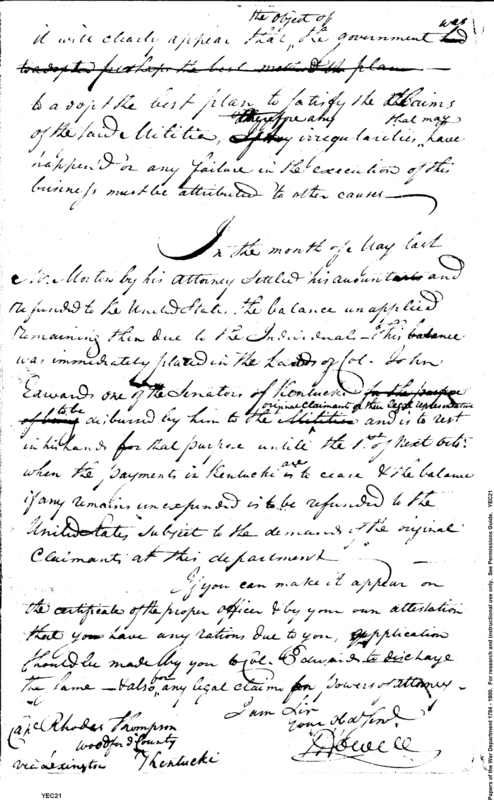 the object of
it will clearly appear that the government was had
to adopted perhaps the best method the plan
to adopt the best plan to satisfy the Claims
of the said Militia, therefore any If any irregularities that may have
happen'd or any failure in the execution of this
business must be attributed to other causes
In the month of May last
Mr. Morton by his attorney Settled his accounts and
refunded to the United States the balance unapplied
remaining then due to the Individual - this balance
was immediately placed in the hands of Col. John
Edwards one of the Senators of Kentucki for the purpose
of being to be disbursed by him to the Militia original Claimants or their legal representatives and is to rest
in his hands for that purpose until the 1st of Next Octr.
when the payments in Kentucki are is to cease & the balance
if any remains unexpended is to be refunded to the
United States subject to the demands of the original
Claimants at this department
If you can make it appear on
the certificate of the proper officer & by your own attestation
that you have any rations due to you, application
should be made by you to Col. Edwards to discharge
the same - & also on any legal claims for powers of attorney -
I am Sir
Your Obd Servt.
J Howell
Capt Rhodes Thompson
Woodford County
via Lexington Kentucki
YEC21
Papers of the War Department 1784 - 1800. For research and instructional use only. See Permissions Guide. YEC21